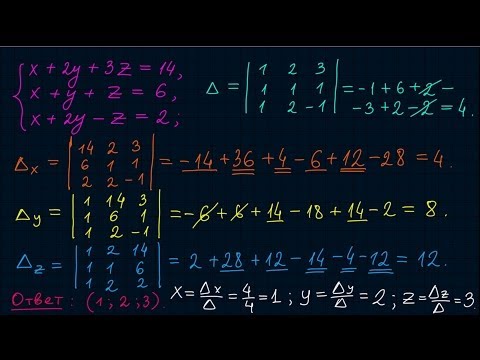 x + 2y + 3z = 14,
x + y + z = 6,
x + 2y - z = 2;
Δ = | 1 2 3 |
| 1 1 1 | = -1 + 6 + 2 -
| 1 2 -1 | -3 + 2 - 2 = 4.
Δx = | 14 2 3 |
| 6 1 1 | = -14 + 36 + 4 - 6 + 12 - 28 = 4.
| 2 2 -1 |
Δy = | 1 14 3 |
| 1 6 1 | = -6 + 6 + 14 - 18 + 14 - 2 = 8.
| 1 2 -1 |
Δz = | 1 2 14 |
| 1 1 6 | = 2 + 28 + 12 - 14 - 4 - 12 = 12.
| 1 2 2 |
Ответ: (1; 2; 3). x = Δx/Δ = 4/4 = 1; y = Δy/Δ = 2; z = Δz/Δ = 3.